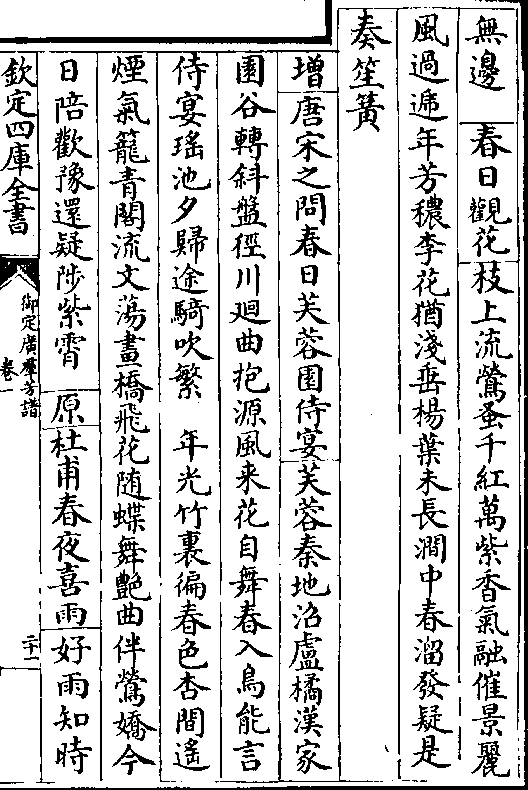 無邊　春日觀花枝上流鶯蚤千紅萬紫香氣融催景麗
風過遞年芳穠李花猶淺垂楊葉未長澗中春溜發疑是
奏笙簧
增唐宋之問春日芙蓉園侍宴芙蓉秦地沼盧橘漢家
園谷轉斜盤徑川廻曲抱源風来花自舞春入鳥能言
侍宴瑤池夕歸途騎吹繁　年光竹裏徧春色杏間遙
煙氣籠青閣流文蕩畫橋飛花随蝶舞艶曲伴鶯嬌今
日陪歡豫還疑陟紫霄　原杜甫春夜喜雨好雨知時
欽定四庫全書
御定廣羣芳譜
卷一
二十一